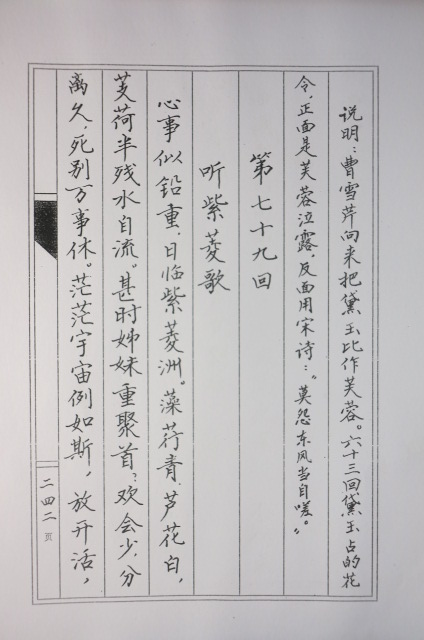 说明：曹雪芹向来把黛玉比作芙蓉。六十三回黛玉占的花
令，正面是芙蓉泣露，反面用宋诗：“莫怨东风当自嗟。”
第七十九回
听紫菱歌
心事似铅重，日临紫菱洲。藻荇青，芦花白，
芰荷半残水自流。甚时姊妹重聚首？欢会少，分
离久，死别万事休。茫茫宇宙例如斯，放开活，
二四二页